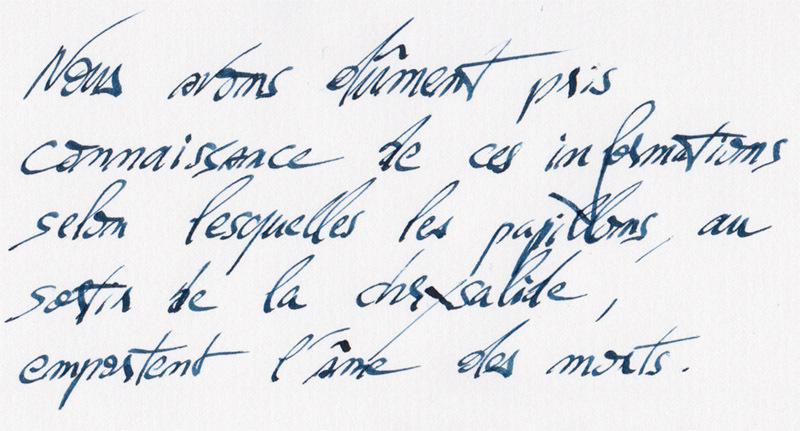 Nous avons dûment pris
connaissance de ces informations
selon lesquelles les papillons, au
sortir de la chrysalide,
emportent l'âme des morts.